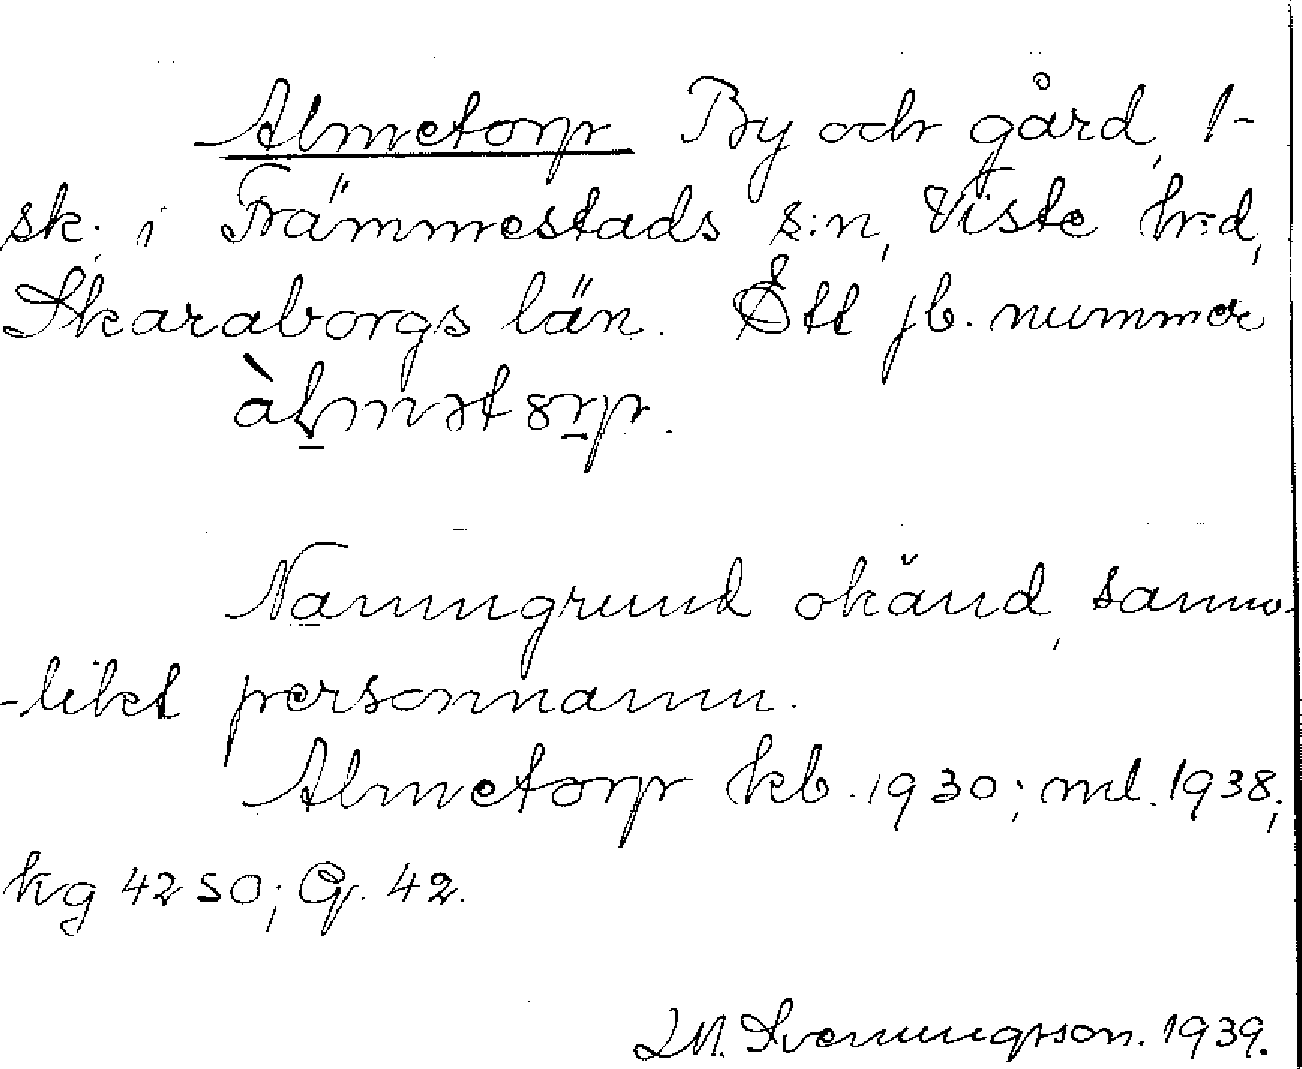 Almetorp By och gård, 1-
sk. i Främmestads s:n, Viste hrd,
Skaraborgs län. Ett jb. nummer
àlmətorp.
Namngrund okänd, sanno-
-likt personnamn.
Almetorp kb. 1930; ml. 1938;
kg 42 SO; G. 42.
Svenungsson. 1939.